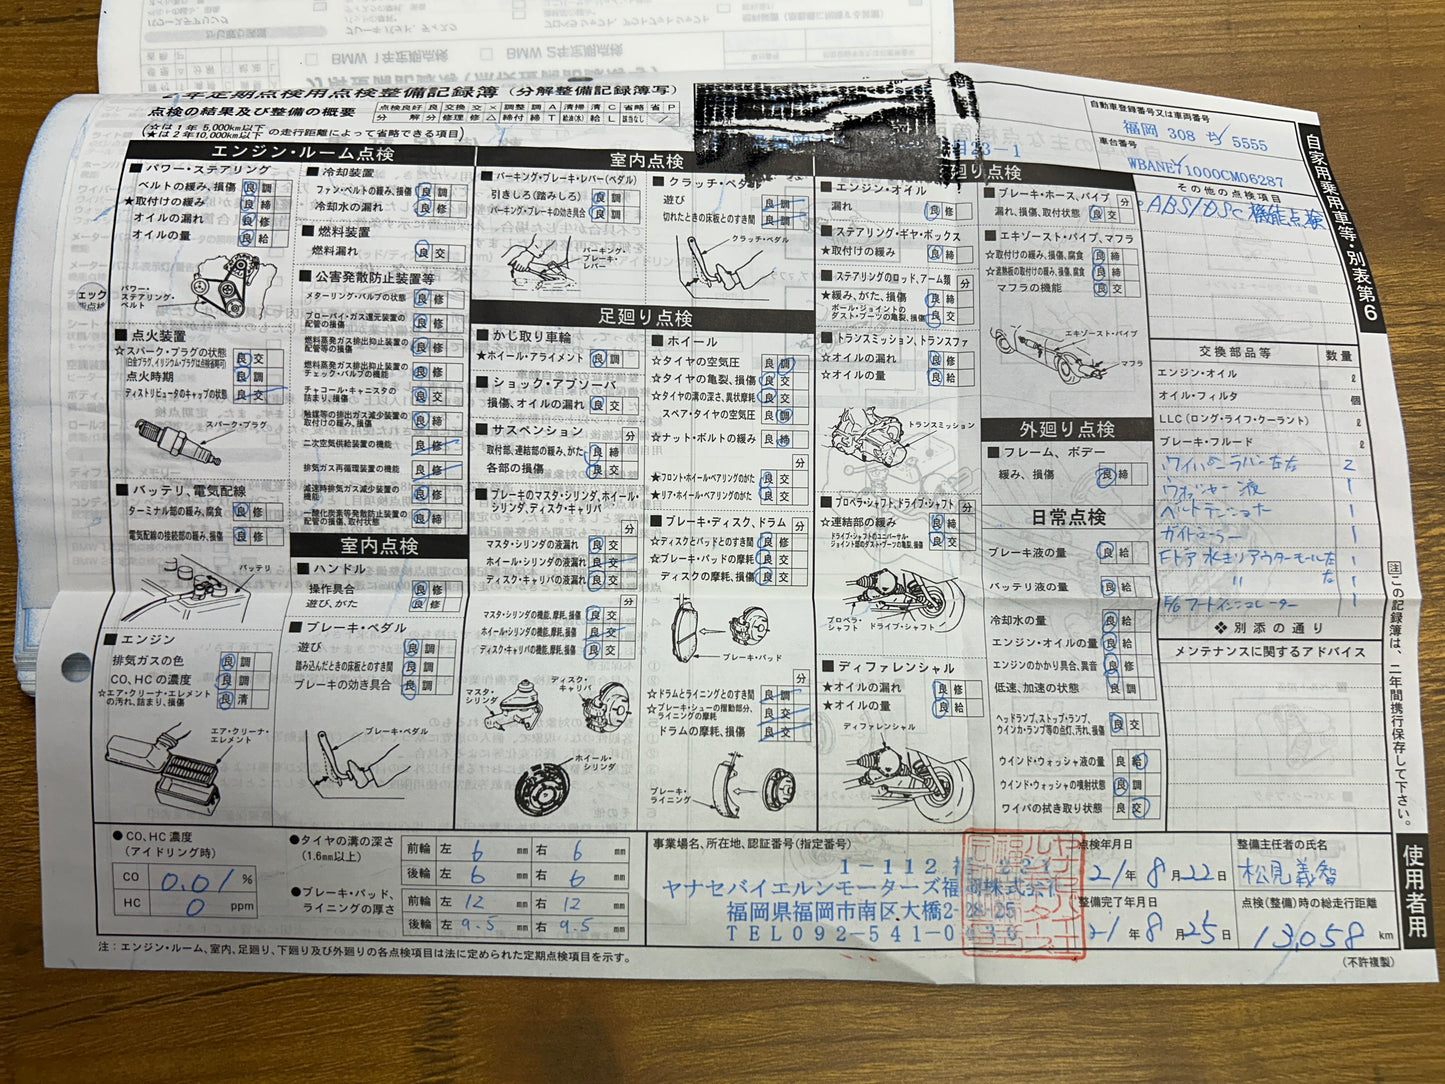 BMW 1年定期点検
BMW 2年定期点検
2年定期点検用点検整備記録簿(分解整備記録簿写)
点検の結果及び整備の概要
点検良好 良 交換 交 × 調整 調 A 清掃 清 C 省略 省 P
分解 分 修理 修 △ 締付 締 T 給油(水) 給 L 該当なし
(☆は1年 5,000km以下
★は2年10,000km以下 の走行距離によって省略できる項目)
自動車登録番号又は車両番号
福岡 308 ち 5555
車台番号
WBANEY1000CM06287
目23-1
自家用乗用車等・別表第6
エンジン・ルーム点検
■パワー・ステアリング
ベルトの緩み、損傷 良 調
★取付けの緩み 良 締
オイルの漏れ 良 修
オイルの量 良 給
パワー・
ステアリング・
ベルト
■点火装置
☆スパーク・プラグの状態 良 交
(白金プラグ、イリジウム・プラグは点検省略可)
点火時期 良 調
ディストリビュータのキャップの状態 良 交
スパーク・プラグ
■バッテリ、電気配線
ターミナル部の緩み、腐食 良 修
電気配線の接続部の緩み、損傷 良 修
バッテリ
■エンジン
排気ガスの色 良 調
CO、HCの濃度 良 調
☆エア・クリーナ・エレメント
の汚れ、詰まり、損傷 良 清
エア・クリーナ・
エレメント
■冷却装置
ファン・ベルトの緩み、損傷 良 調
冷却水の漏れ 良 修
■燃料装置
燃料漏れ 良 交
■公害発散防止装置等
メターリング・バルブの状態 良 修
ブローバイ・ガス還元装置の
配管の損傷 良 修
燃料蒸発ガス排出抑止装置の
配管等の損傷 良 修
燃料蒸発ガス排出抑止装置の
チェック・バルブの機能 良 修
チャコール・キャニスタの
詰まり、損傷 良 交
触媒等の排出ガス減少装置の
取付けの緩み、損傷 良 締
二次空気供給装置の機能 良 修
排気ガス再循環装置の機能 良 修
減速時排気ガス減少装置の
機能 良 修
一酸化炭素等発散防止装置の
配管の損傷、取付状態 良 修
室内点検
■ハンドル
操作具合
遊び、がた 良 修
■ブレーキ・ペダル
遊び 良 調
踏み込んだときの床板とのすき間 良 調
ブレーキの効き具合 良 調
ブレーキ・ペダル
室内点検
■パーキング・ブレーキ・レバー(ペダル)
引きしろ(踏みしろ) 良 調
パーキング・ブレーキの効き具合 良 調
パーキング・
ブレーキ・
レバー
■クラッチ・ペダル
遊び 良 調
切れたときの床板とのすき間 良 調
クラッチ・ペダル
足廻り点検
■かじ取り車輪
★ホイール・アライメント 良 調
■ショック・アブソーバ
損傷、オイルの漏れ 良 交
■サスペンション 分
取付部、連結部の緩み、がた 良 締
各部の損傷 良 交
■ブレーキのマスタ・シリンダ、ホイール・
シリンダ、ディスク・キャリパ 分
マスタ・シリンダの液漏れ 良 交
ホイール・シリンダの液漏れ 良 交
ディスク・キャリパの液漏れ 良 交
分
マスタ・シリンダの機能、摩耗、損傷 良 交
ホイール・シリンダの機能、摩耗、損傷 良 交
ディスク・キャリパの機能、摩耗、損傷 良 交
マスタ・
シリンダ
ディスク・
キャリパ
ホイール・
シリンダ
■ホイール
☆タイヤの空気圧 良 調
☆タイヤの亀裂、損傷 良 交
☆タイヤの溝の深さ、異状摩耗 良 交
スペア・タイヤの空気圧 良 調
☆ナット・ボルトの緩み 良 締
分
★フロント・ホイール・ベアリングのがた 良 交
★リア・ホイール・ベアリングのがた 良 交
■ブレーキ・ディスク、ドラム 分
☆ディスクとパッドとのすき間 良 修
☆ブレーキ・パッドの摩耗 良 交
ディスクの摩耗、損傷 良 交
ブレーキ・パッド
分
☆ドラムとライニングとのすき間 良 調
☆ブレーキ・シューの摺動部分、
ライニングの摩耗 良 交
ドラムの摩耗、損傷 良 交
ブレーキ・
ライニング
廻り点検
■エンジン・オイル
漏れ 良 修
■ステアリング・ギヤ・ボックス
★取付けの緩み 良 締
■ステアリングのロッド、アーム類 分
★緩み、がた、損傷 良 締
ボール・ジョイントの
ダスト・ブーツの亀裂、損傷 良 交
■トランスミッション、トランスファ
☆オイルの漏れ 良 修
☆オイルの量 良 給
トランスミッション
■プロペラ・シャフト、ドライブ・シャフト 分
☆連結部の緩み 良 締
ドライブ・シャフトのユニバーサル・
ジョイント部のダスト・ブーツの亀裂、損傷 良 交
プロペラ・
シャフト
ドライブ・シャフト
■ディファレンシャル
★オイルの漏れ 良 修
★オイルの量 良 給
ディファレンシャル
■ブレーキ・ホース、パイプ 分
漏れ、損傷、取付状態 良 交
■エキゾースト・パイプ、マフラ
☆取付けの緩み、損傷、腐食 良 締
☆遮熱板の取付けの緩み、損傷、腐食 良 締
マフラの機能 良 交
エキゾースト・パイプ
マフラ
外廻り点検
■フレーム、ボデー
緩み、損傷 良 締
日常点検
ブレーキ液の量 良 給
バッテリ液の量 良 給
冷却水の量 良 給
エンジン・オイルの量 良 給
エンジンのかかり具合、異音 良 修
低速、加速の状態 良 調
ヘッドランプ、ストップ・ランプ、
ウインカ・ランプ等の点灯、汚れ、損傷 良 交
ウインド・ウォッシャ液の量 良 給
ウインド・ウォッシャの噴射状態 良 調
ワイパの拭き取り状態 良 交
その他の点検項目
ABS/DSC 機能点検
交換部品等 数量
エンジン・オイル ℓ
オイル・フィルタ 個
LLC(ロング・ライフ・クーラント) ℓ
ブレーキ・フルード ℓ
ワイパーラバー左右 2
ウォッシャー液 1
ベルトテンショナー 1
ガイドローラー 1
Fドア 水切リアウターモール左 1
〃 右 1
❖ 別添の通り
メンテナンスに関するアドバイス
注 この記録簿は、二年間携行保存して下さい。
使用者用
●CO、HC濃度
(アイドリング時)
CO 0.01 %
HC 0 ppm
●タイヤの溝の深さ
(1.6mm以上)
前輪 左 6 mm 右 6 mm
後輪 左 6 mm 右 6 mm
●ブレーキ・パッド、
ライニングの厚さ
前輪 左 12 mm 右 12 mm
後輪 左 9.5 mm 右 9.5 mm
事業場名、所在地、認証番号(指定番号)
1-112
ヤナセバイエルンモーターズ福岡株式会社
福岡県福岡市南区大橋2-28-25
TEL092-541-0
点検年月日
21年 8月22日
整備完了年月日
21年 8月25日
整備主任者の氏名
松見義智
点検(整備)時の総走行距離
13,058 km
注：エンジン・ルーム、室内、足廻り、下廻り及び外廻りの各点検項目は法に定められた定期点検項目を示す。
(不許複製)